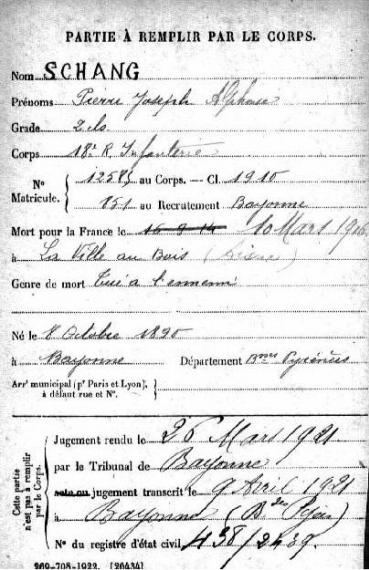 PARTIE À REMPLIR PAR LE CORPS.
Nom SCHANG
Prénoms Pierre Joseph Alphonse
Grade
Corps 18e R. Infanterie
No Matricule. 12585 au Corps. — Cl. 1910
851 au Recrutement Bayonne
Mort pour la France le 16-9-14 10 Mars 1916
à La Ville au Bois (Aisne)
Genre de mort Tué à l'ennemi
Né le 8 Octobre 1890
à Bayonne Département Bses Pyrénées
Arrt municipal (pr Paris et Lyon),
à défaut rue et No.
Cette partie n'est pas à remplir par le Corps.
Jugement rendu le 26 Mars 1921
par le Tribunal de Bayonne
acte ou jugement transcrit le 9 Avril 1921
à Bayonne (Bses Pyr.)
No du registre d'état civil 438/2439
269-708-1922. [26434]